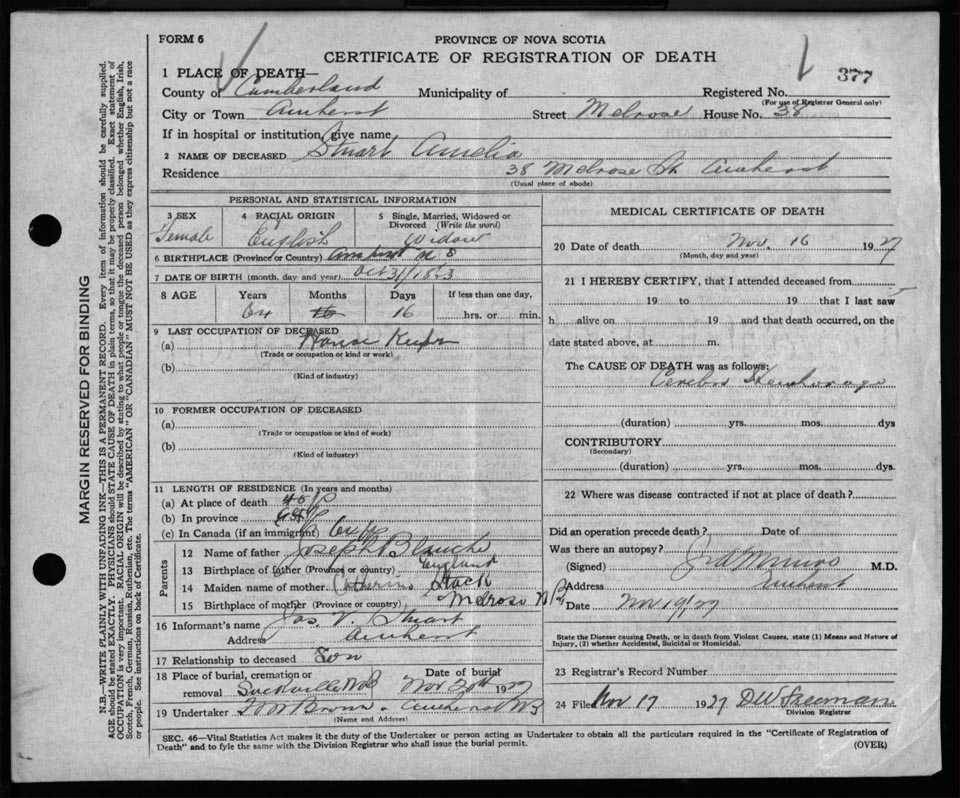 FORM 6
PROVINCE OF NOVA SCOTIA
CERTIFICATE OF REGISTRATION OF DEATH
377
1 PLACE OF DEATH—
County of Cumberland Municipality of Registered No.
(For use of Registrar General only)
City or Town Amherst Street Melrose House No. 38
If in hospital or institution, give name
2 NAME OF DECEASED Stuart Amelia
Residence 38 Melrose St. Amherst
(Usual place of abode)
PERSONAL AND STATISTICAL INFORMATION
3 SEX
Female
4 RACIAL ORIGIN
English
5 Single, Married, Widowed or Divorced (Write the word)
Widow
6 BIRTHPLACE (Province or Country) Amherst N S
7 DATE OF BIRTH (month, day and year) Oct 31/1863
8 AGE Years Months Days If less than one day,
64 16 hrs. or min.
9 LAST OCCUPATION OF DECEASED
(a) House Keeper
(Trade or occupation or kind of work)
(b)
(Kind of industry)
10 FORMER OCCUPATION OF DECEASED
(a)
(Trade or occupation or kind of work)
(b)
(Kind of industry)
11 LENGTH OF RESIDENCE (In years and months)
(a) At place of death 45
(b) In province
(c) In Canada (if an immigrant)
Parents
12 Name of father Joseph Blanche
13 Birthplace of father (Province or country) England
14 Maiden name of mother Catherine Slack
15 Birthplace of mother (Province or country) Melrose N B
16 Informant's name Jas. V. Stuart
Address Amherst
17 Relationship to deceased Son
18 Place of burial, cremation or removal Sackville N B Date of burial Nov 20th 1927
19 Undertaker Brown Amherst N S
(Name and Address)
MEDICAL CERTIFICATE OF DEATH
20 Date of death Nov. 16 1927
(Month, day and year)
21 I HEREBY CERTIFY, that I attended deceased from
19 to 19 that I last saw
h alive on 19 and that death occurred, on the
date stated above, at m.
The CAUSE OF DEATH was as follows:
Cerebral Hemhorage
(duration) yrs. mos. dys
CONTRIBUTORY
(Secondary)
(duration) yrs. mos. dys.
22 Where was disease contracted if not at place of death?
Did an operation precede death? Date of
Was there an autopsy?
(Signed) Munro M.D.
Address Amherst
Date Nov 19/27
State the Disease causing Death, or in death from Violent Causes, state (1) Means and Nature of
Injury, (2) whether Accidental, Suicidal or Homicidal.
23 Registrar's Record Number
24 Filed Nov 17 1927 D W Freeman
Division Registrar
SEC. 46—Vital Statistics Act makes it the duty of the Undertaker or person acting as Undertaker to obtain all the particulars required in the "Certificate of Registration of
Death" and to fyle the same with the Division Registrar who shall issue the burial permit. (OVER)
MARGIN RESERVED FOR BINDING
N.B.—WRITE PLAINLY WITH UNFADING INK—THIS IS A PERMANENT RECORD. Every item of information should be carefully supplied.
AGE should be stated EXACTLY. PHYSICIANS should STATE CAUSE OF DEATH in plain terms, so that it may be properly classified. Exact statement of
OCCUPATION is very important. RACIAL ORIGIN will be described by stating to what people or tongue the deceased person belonged whether English, Irish,
Scotch, French, German, Russian, Ruthenian, etc. The terms "AMERICAN" OR "CANADIAN" MUST NOT BE USED as they express citizenship but not a race
or people. See instructions on back of Certificate.